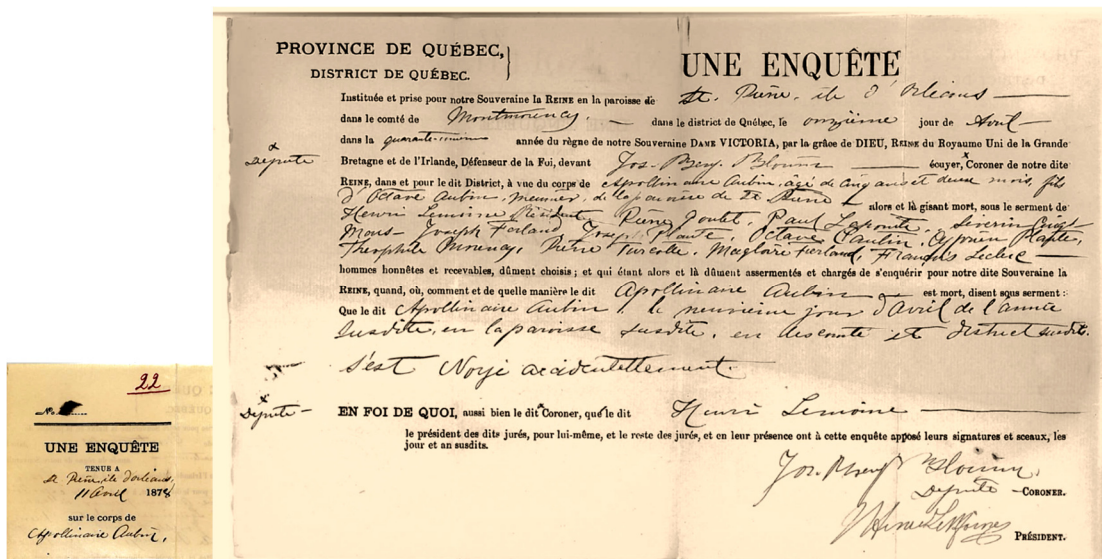 22
No.
UNE ENQUÊTE
TENUE A
St Pierre, île d'orléans,
11 Avril 1878
sur le corps de
Apollinaire Aubin,
PROVINCE DE QUÉBEC,
DISTRICT DE QUÉBEC.
UNE ENQUÊTE
Instituée et prise pour notre Souveraine la REINE en la paroisse de St. Pierre, île d'Orléans
dans le comté de Montmorency. dans le district de Québec, le onzième jour de Avril
dans la année du règne de notre Souveraine DAME VICTORIA, par la grâce de DIEU, REINE du Royaume Uni de la Grande
x Député Bretagne et de l'Irlande, Défenseur de la Foi, devant Jos. Benj. Blouin écuyer, x Coroner de notre dite
REINE, dans et pour le dit District, à vue du corps de Apollinaire Aubin, âgé de cinq ans et deux mois, fils
d'Octave Aubin, meunier, de la paroisse de St Pierre alors et là gisant mort, sous le serment de
Henri Lemoine Président, Pierre Goulet, Paul Lapointe, Séverin
Joseph Ferland, Joseph Plante, Octave, Cyprien Plante,
Théophile Morency, Pierre Turcotte, Magloire Ferland, François Leclerc
hommes honnêtes et recevables, dûment choisis ; et qui étant alors et là dûment assermentés et chargés de s'enquérir pour notre dite Souveraine la
REINE, quand, où, comment et de quelle manière le dit Apollinaire Aubin est mort, disent sous serment :
Que le dit Apollinaire Aubin, le neuvième jour d'Avril de l'année
susdite, en la paroisse susdite, en des comté et district susdits.
s'est Noyé accidentellement.
x Député EN FOI DE QUOI, aussi bien le dit x Coroner, que le dit Henri Lemoine
le président des dits jurés, pour lui-même, et le reste des jurés, et en leur présence ont à cette enquête apposé leurs signatures et sceaux, les
jour et an susdits.
Jos. Benj Blouin,
Député CORONER.
Henri Lemoine
PRÉSIDENT.